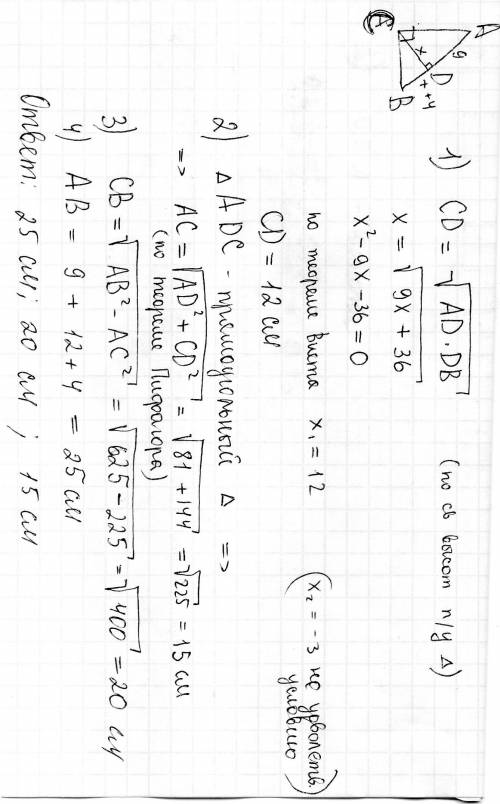 A
9
D
x
x+4
C
B
1) CD = √AD·DB (по св высот п/у Δ)
x = √9x + 36
x² - 9x - 36 = 0
по теореме Виета x₁ = 12 (x₂ = -3 не удволеть. условию)
CD = 12 см
2) Δ ADC - прямоугольный Δ =>
=> AC = √AD² + CD² = √81 + 144 = √225 = 15 см
(по теореме Пифагора)
3) CB = √AB² - AC² = √625 - 225 = √400 = 20 см
4) AB = 9 + 12 + 4 = 25 см
Ответ: 25 см; 20 см; 15 см